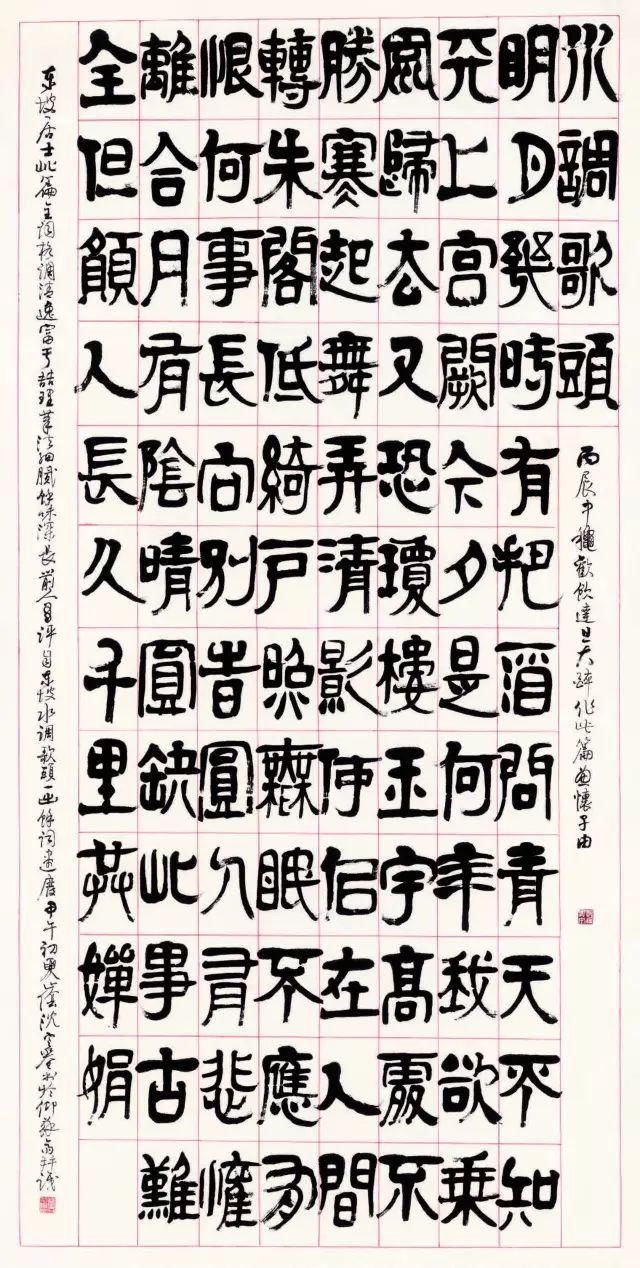 水調歌頭
丙辰中秋歡飲達旦大醉作此篇兼懷子由
明月幾時有把酒問青天不知
天上宮闕今夕是何年我欲乘
風歸去又恐瓊樓玉宇高處不
勝寒起舞弄清影何佀在人間
轉朱閣低綺戶照無眠不應有
恨何事長向別時圓人有悲懽
離合月有陰晴圓缺此事古難
全但願人長久千里共嬋娟
东坡居士此篇主词格调清逸富于喆理笔法细腻馀味深长前人曾评自东坡水调歌头一出馀词尽废甲午初夏沈书於仰苏斋并识